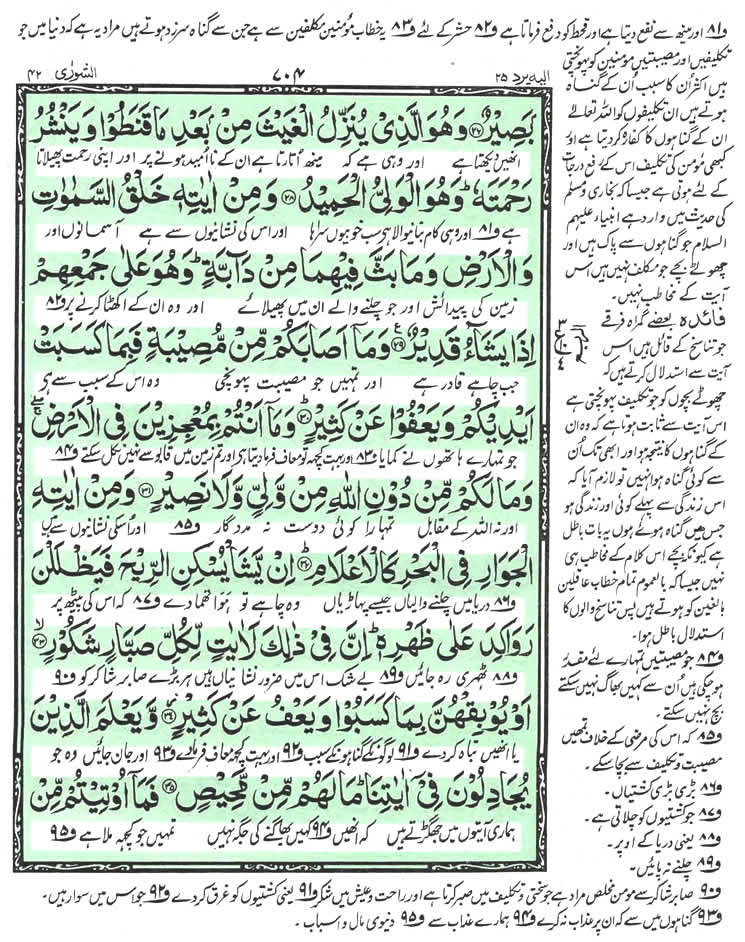 و۸۱ اور مینھ سے نفع دیتا ہے اور قحط کو دفع فرماتا ہے و۸۲ حشر کے لئے و۸۳ یہ خطاب مؤمنین مکلفین سے ہے جن سے گناہ سرزد ہوتے ہیں مراد یہ ہے کہ دنیا میں جو
الشورٰی ۴۲
۷۰۴
الیہ یرد ۲۵
بَصِیْرٌ۝۲۷ وَهُوَ الَّذِیْ یُنَزِّلُ الْغَیْثَ مِنْۢ بَعْدِ مَا قَنَطُوْا وَیَنْشُرُ
انھیں دیکھتا ہے اور وہی ہے کہ مینھ اُتارتا ہے ان کے نا امید ہونے پر اور اپنی رحمت پھیلاتا
رَحْمَتَهٗ ؕ وَهُوَ الْوَلِیُّ الْحَمِیْدُ۝۲۸ وَمِنْ اٰیٰتِهٖ خَلْقُ السَّمٰوٰتِ
ہے و۸۱ اور وہی کام بنانیوالا ہے سب خوبیوں سراہا اور اس کی نشانیوں سے ہے آسمانوں اور
وَالْاَرْضِ وَمَا بَثَّ فِیْهِمَا مِنْ دَآبَّةٍ ؕ وَهُوَ عَلٰی جَمْعِهِمْ
زمین کی پیدائش اور جو چلنے والے ان میں پھیلائے اور وہ ان کے اکھٹا کرنے پر و۸۲
اِذَا یَشَآءُ قَدِیْرٌ۝۲۹ وَمَاۤ اَصَابَكُمْ مِّنْ مُّصِیْبَةٍ فَبِمَا كَسَبَتْ
جب چاہے قادر ہے اور تمہیں جو مصیبت پہونچی وہ اس کے سبب سے ہے
اَیْدِیْكُمْ وَیَعْفُوْا عَنْ كَثِیْرٍ۝۳۰ وَمَاۤ اَنْتُمْ بِمُعْجِزِیْنَ فِی الْاَرْضِ ۚۖ
جو تمہارے ہاتھوں نے کمایا و۸۳ اور بہت کچھ تو معاف فرما دیتا ہے اور تم زمین میں قابو سے نہیں نکل سکتے و۸۴
وَمَا لَكُمْ مِّنْ دُوْنِ اللّٰهِ مِنْ وَّلِیٍّ وَّلَا نَصِیْرٍ۝۳۱ وَمِنْ اٰیٰتِهِ
اور نہ اللہ کے مقابل تمہارا کوئی دوست نہ مددگار و۸۵ اور اُسکی نشانیوں سے ہیں
الْجَوَارِ فِی الْبَحْرِ كَالْاَعْلَامِ۝۳۲ اِنْ یَّشَاْ یُسْكِنِ الرِّیْحَ فَیَظْلَلْنَ
و۸۶ دریا میں چلنے والیاں جیسے پہاڑیاں وہ چاہے تو ہوا تھما دے و۸۷ کہ اس کی پیٹھ پر
رَوَاكِدَ عَلٰی ظَهْرِهٖ ؕ اِنَّ فِیْ ذٰلِكَ لَاٰیٰتٍ لِّكُلِّ صَبَّارٍ شَكُوْرٍ۝۳۳
و۸۸ ٹھہری رہ جائیں و۸۹ بے شک اس میں ضرور نشانیاں ہیں ہر بڑے صابر شاکر کو و۹۰
اَوْ یُوْبِقْهُنَّ بِمَا كَسَبُوْا وَیَعْفُ عَنْ كَثِیْرٍ۝۳۴ وَّیَعْلَمَ الَّذِیْنَ
یا انھیں تباہ کر دے و۹۱ لوگوں کے گناہوں کے سبب و۹۲ اور بہت کچھ معاف فرما دے و۹۳ اور جان جائیں وہ جو
یُجَادِلُوْنَ فِیْۤ اٰیٰتِنَا ؕ مَا لَهُمْ مِّنْ مَّحِیْصٍ۝۳۵ فَمَاۤ اُوْتِیْتُمْ مِّنْ
ہماری آیتوں میں جھگڑتے ہیں کہ انھیں و۹۴ کہیں بھاگنے کی جگہ نہیں تمہیں جو کچھ ملا ہے و۹۵
تکلیفیں اور مصیبتیں مؤمنین کو پہونچتی
ہیں اکثر ان کا سبب اُن کے گناہ
ہوتے ہیں ان تکلیفوں کو اللہ تعالےٰ
ان کے گناہوں کا کفارہ کر دیتا ہے اور
کبھی مؤمن کی تکلیف اس کے رفع درجات
کے لئے ہوتی ہے جیسا کہ بخاری و مسلم
کی حدیث میں وارد ہے انبیاء علیہم
السلام جو گناہوں سے پاک ہیں اور
چھوٹے بچے جو مکلف نہیں ہیں اس
آیت کے مخاطب نہیں۔
فائدہ بعضے گمراہ فرقے
جو تناسخ کے قائل ہیں اس
آیت سے استدلال کرتے ہیں کہ
چھوٹے بچوں کو جو تکلیف پہونچتی ہے
اس آیت سے ثابت ہوتا ہے کہ وہ ان
کے گناہوں کا نتیجہ ہو اور ابھی تک اُن
سے کوئی گناہ ہوا نہیں تو لازم آیا کہ
اس زندگی سے پہلے کوئی اور زندگی ہو
جس میں گناہ ہوئے ہوں یہ بات باطل
ہے کیونکہ بچے اس کلام کے مخاطب ہی
نہیں جیسا کہ بالعموم تمام خطاب عاقلین
بالغین کو ہوتے ہیں پس تناسخ والوں کا
استدلال باطل ہوا۔
و۸۴ جو مصیبتیں تمہارے لئے مقدر
ہو چکی ہیں اُن سے کہیں بھاگ نہیں سکتے
بچ نہیں سکتے۔
و۸۵ کہ اس کی مرضی کے خلاف تمھیں
مصیبت و تکلیف سے بچا سکے۔
و۸۶ بڑی بڑی کشتیاں۔
و۸۷ جو کشتیوں کو چلاتی ہے۔
و۸۸ یعنی دریا کے اوپر۔
و۸۹ چلنے نہ پائیں۔
و۹۰ صابر شاکر سے مؤمن مخلص مراد ہے جو سختی و تکلیف میں صبر کرتا ہے اور راحت و عیش میں شکر و۹۱ یعنی کشتیوں کو غرق کر دے و۹۲ جو اس میں سوار ہیں۔
و۹۳ گناہوں میں سے کہ ان پر عذاب نہ کرے و۹۴ ہمارے عذاب سے و۹۵ دنیوی مال و اسباب۔